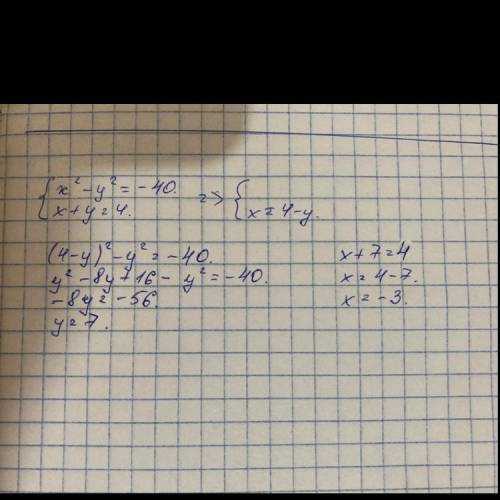 { x² - y² = -40.
x + y = 4.
=> {
x = 4 - y.
(4 - y)² - y² = -40.
y² - 8y + 16 - y² = -40.
-8y = -56.
y = 7.
x + 7 = 4
x = 4 - 7.
x = -3.